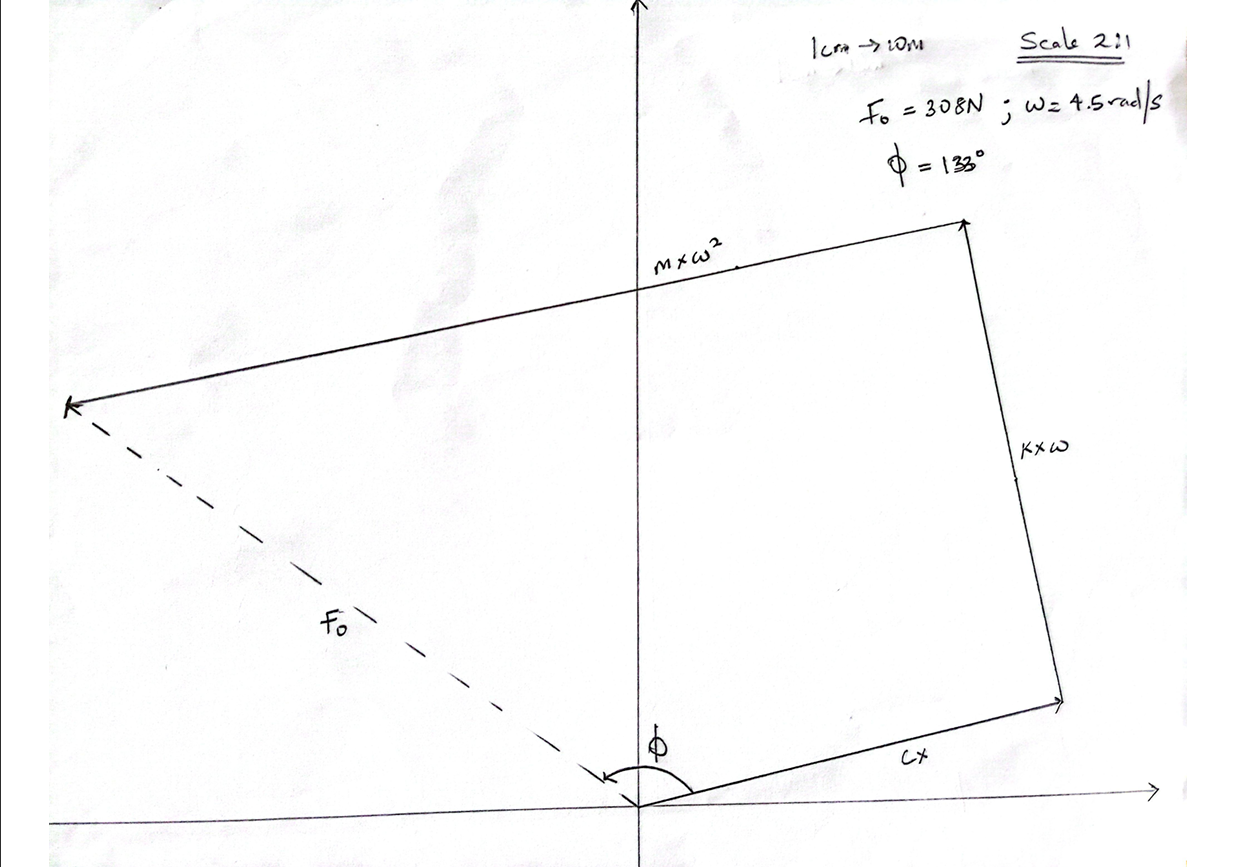 1cm → 10N Scale 2:1
F₀ = 308N ; ω = 4.5 rad/s
ϕ = 133°
m x ω²
K x ω
F₀
ϕ
c x